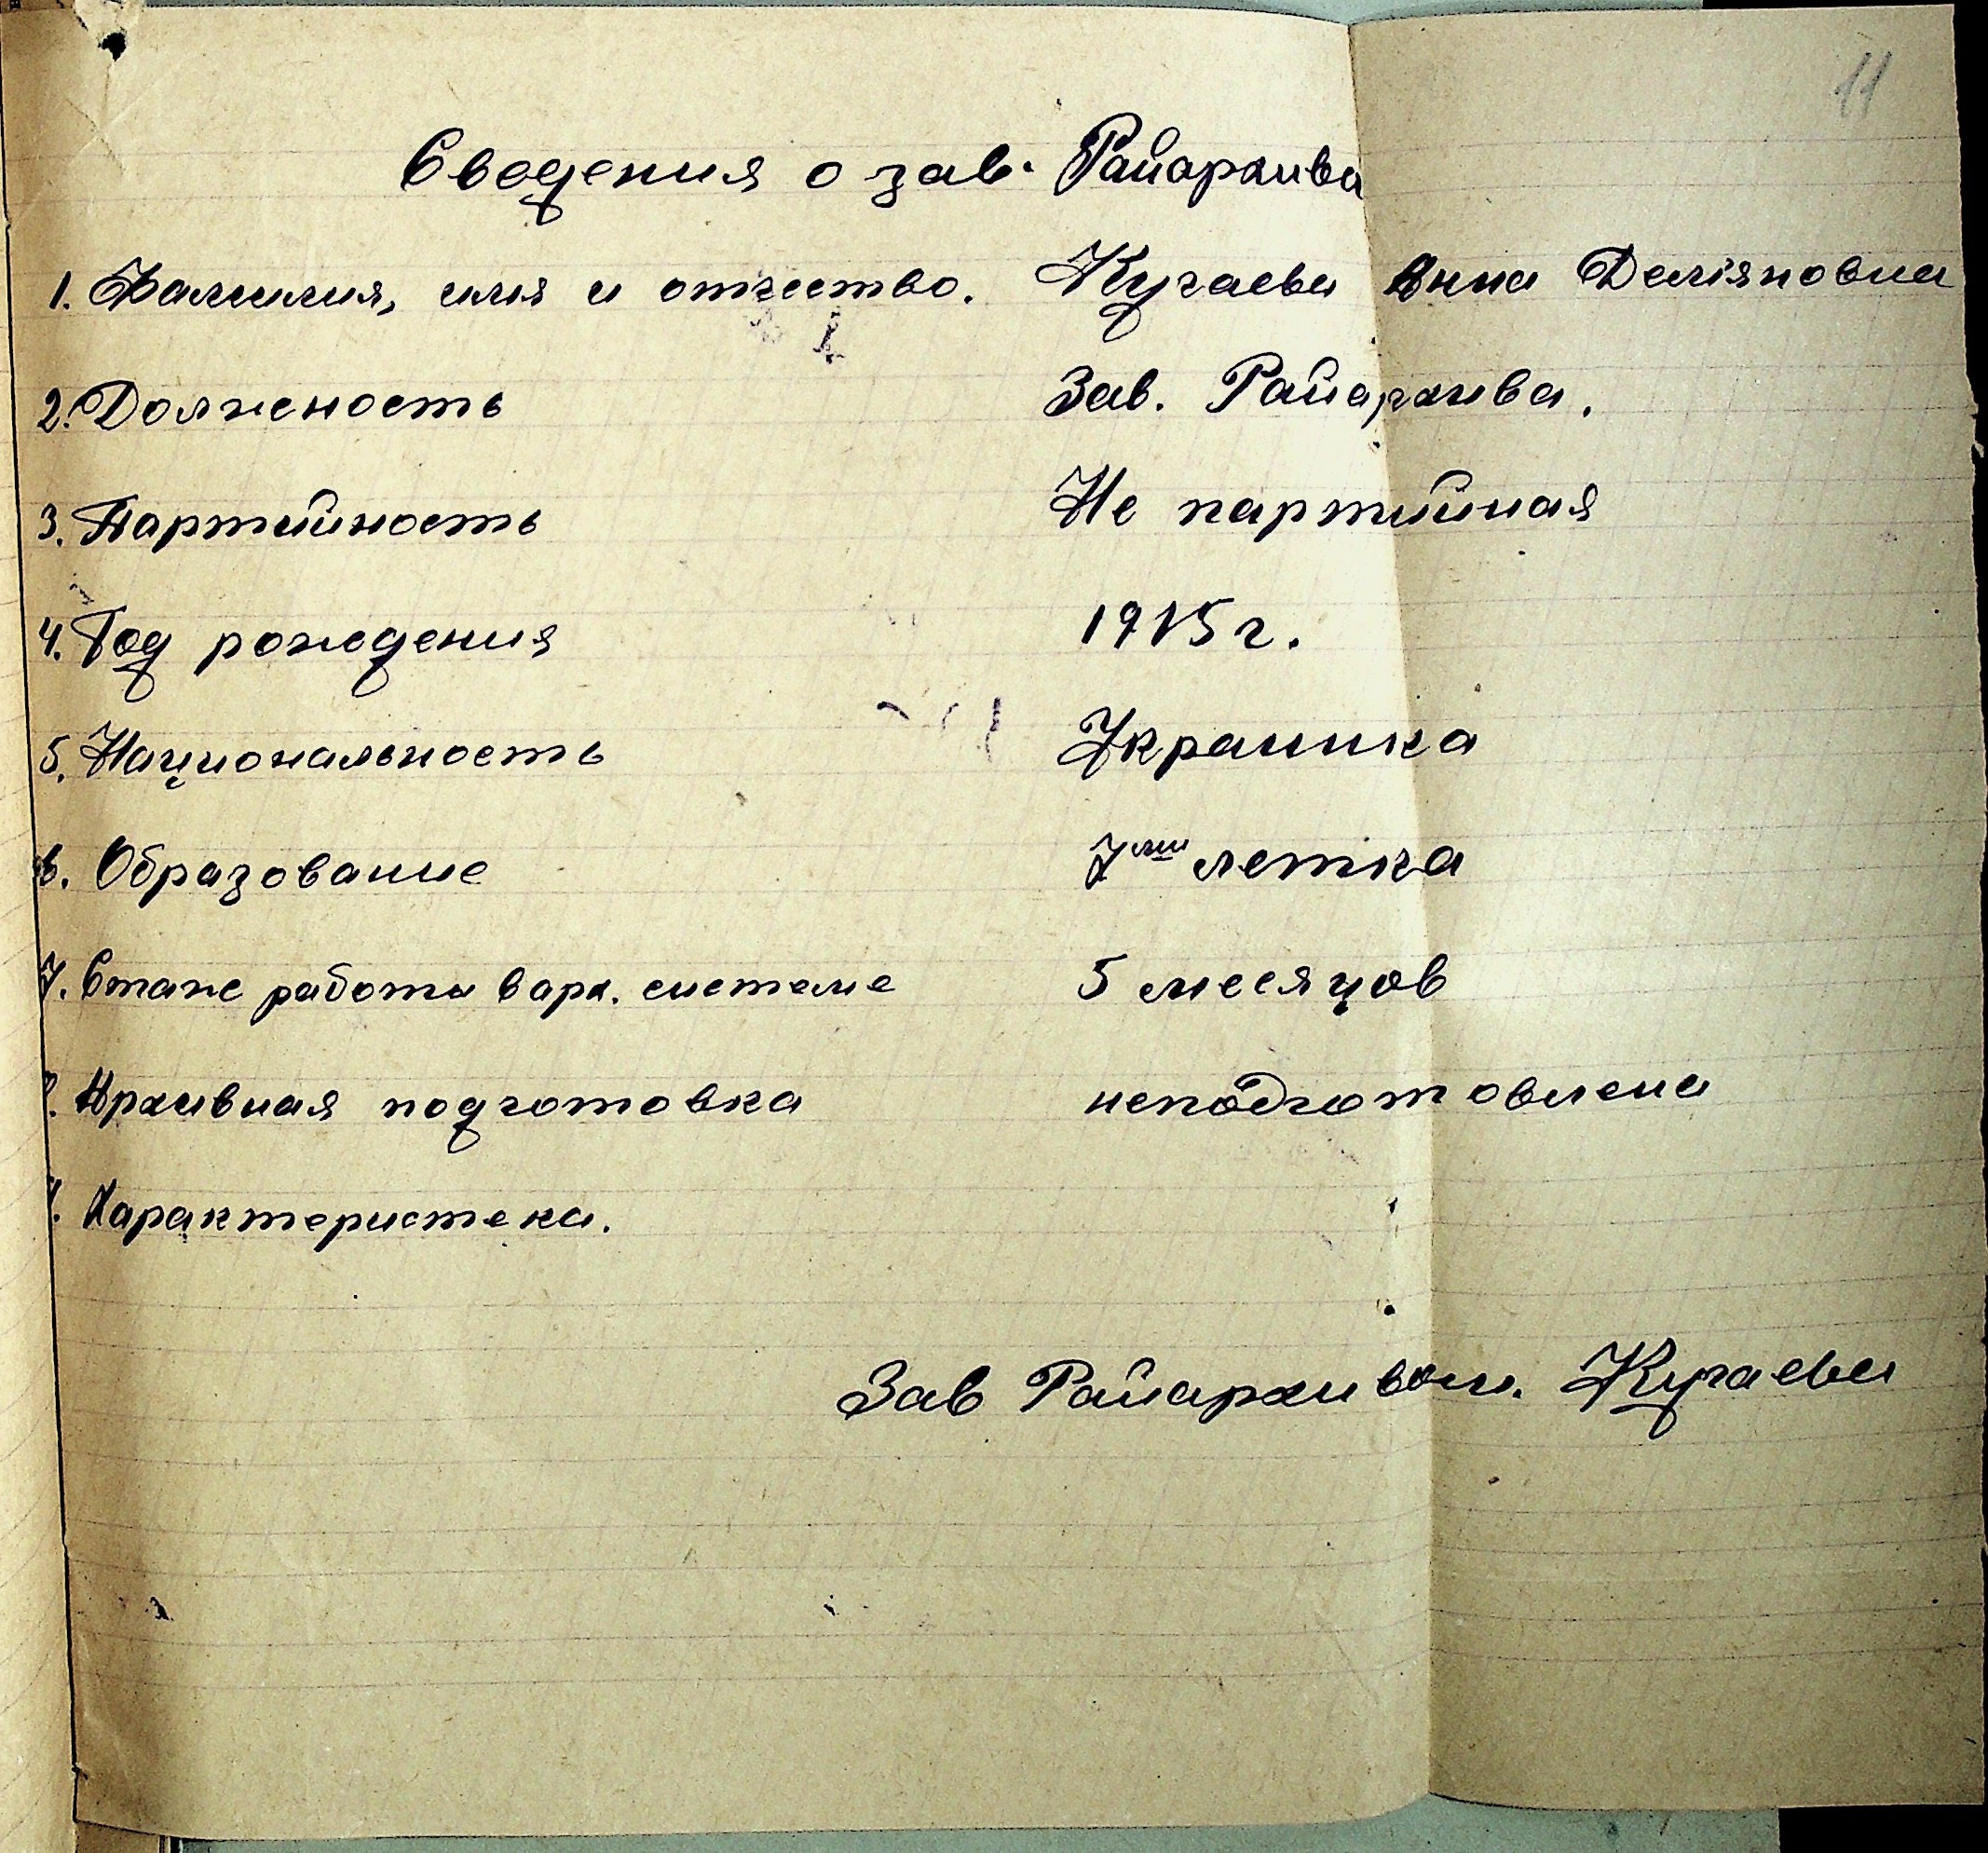 11
Сведения о зав. Райархива
1. Фамилия, имя и отчество. Кугаева Анна Демяновна
2. Должность Зав. Райархива.
3. Партийность Не партийная
4. Год рождения 1915 г.
5. Национальность Украинка
6. Образование 7ми летка
7. Стаж работы в арх. системе 5 месяцов
8. Архивная подготовка неподготовлена
9. Характеристека.
Зав Райархивом. Кугаева